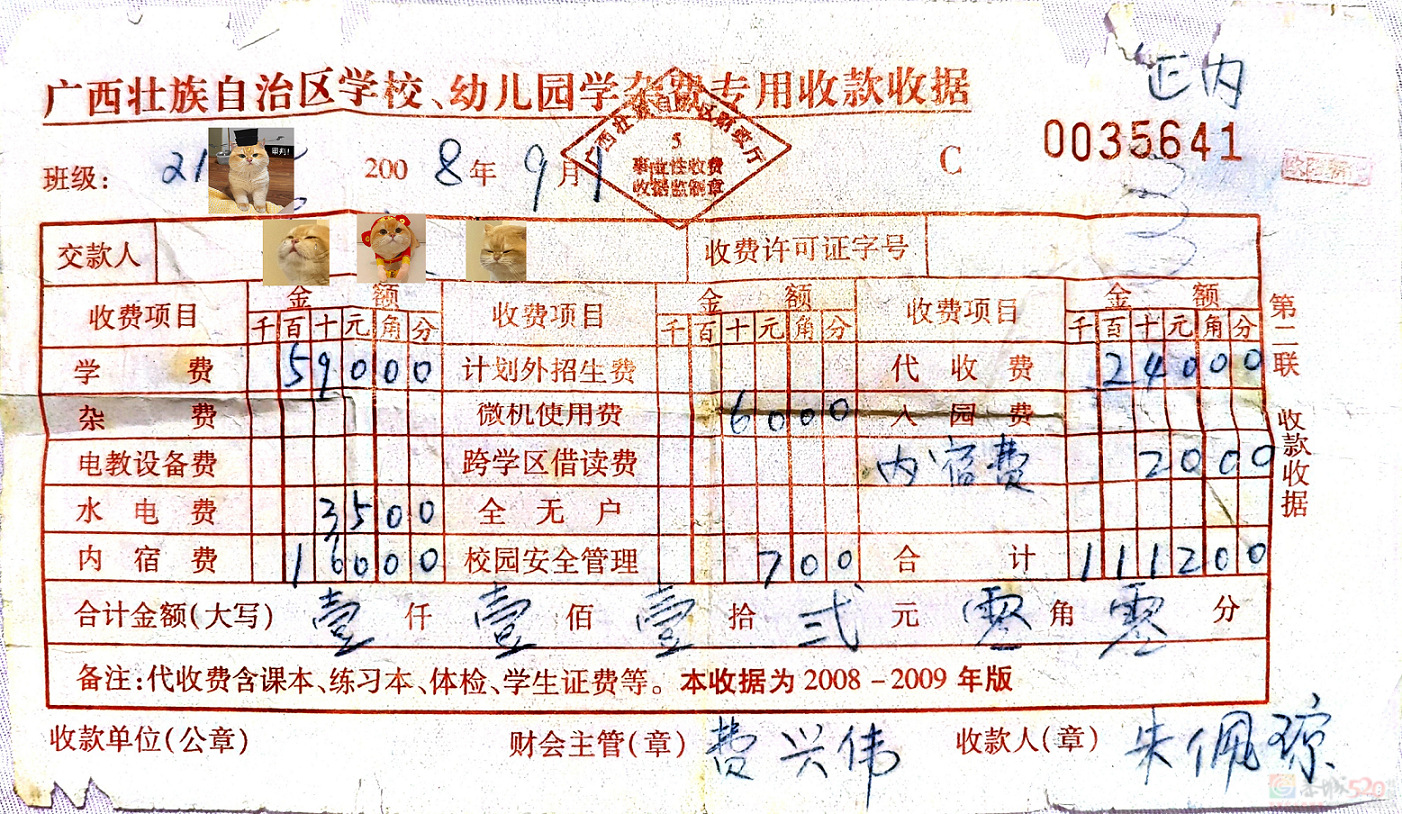 正内
广西壮族自治区学校、幼儿园学杂费专用收款收据
广西壮族自治区财政厅
5
事业性收费
收据监制章
C
0035641
班级: 21
2008年9月1
交款人
收费许可证字号
收费项目 金额 收费项目 金额 收费项目 金额
千百十元角分 千百十元角分 千百十元角分
学费 59000 计划外招生费 代收费 24000
杂费 微机使用费 6000 入园费
电教设备费 跨学区借读费 内宿费 2000
水电费 3500 全无户
内宿费 16000 校园安全管理 700 合计 111200
合计金额(大写) 壹仟壹佰壹拾弍元零角零分
备注:代收费含课本、练习本、体检、学生证费等。本收据为2008-2009年版
第二联 收款收据
收款单位(公章) 财会主管(章) 费兴伟 收款人(章) 朱佩琼
520